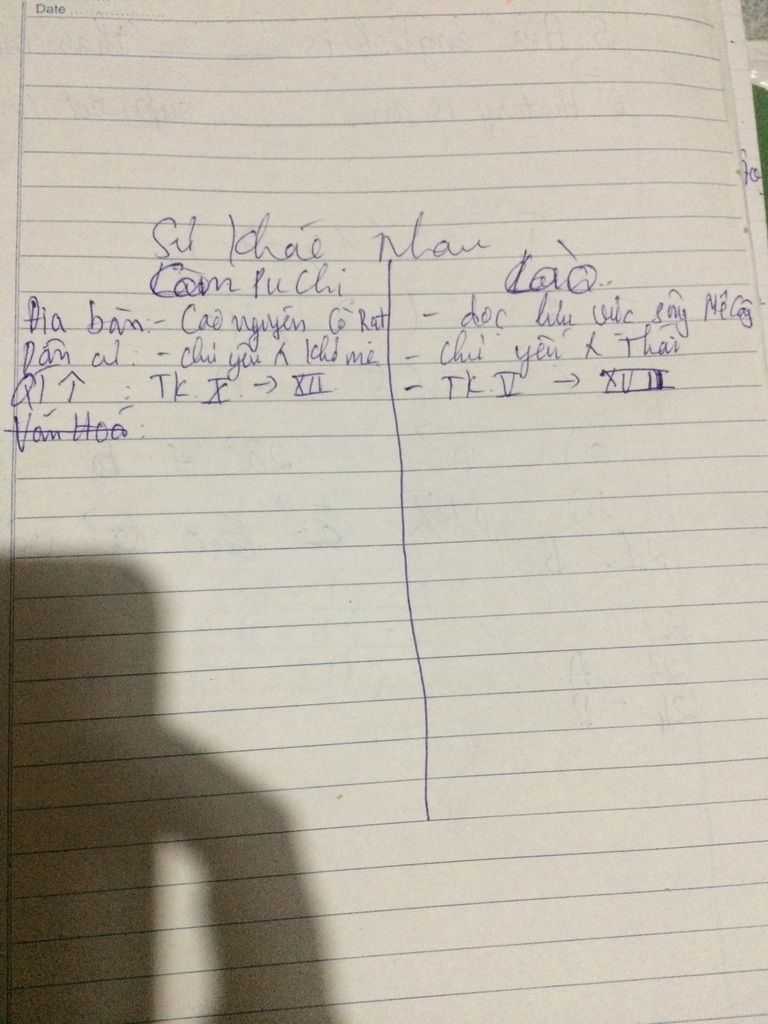 Date
Sự khác nhau
Căm Pu Chi
Lào
Địa bàn: - Cao nguyên Cò Rạt
- dọc lưu vực sông Mê Công
Dân cư: - chủ yếu X Khơ me
- chủ yếu X Thái
QT ↑ : TK X → XII
- TK V → XVIII
Văn Hoá: